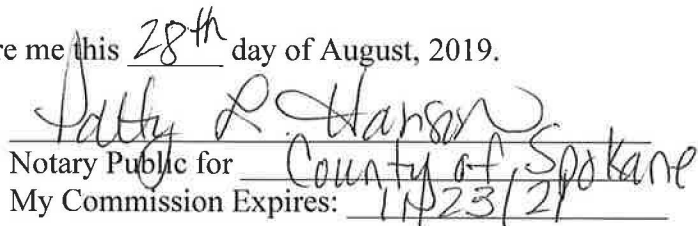 re me this 28th day of August, 2019.
Patty L. Hanson
Notary Public for County of Spokane
My Commission Expires: 11/23/21